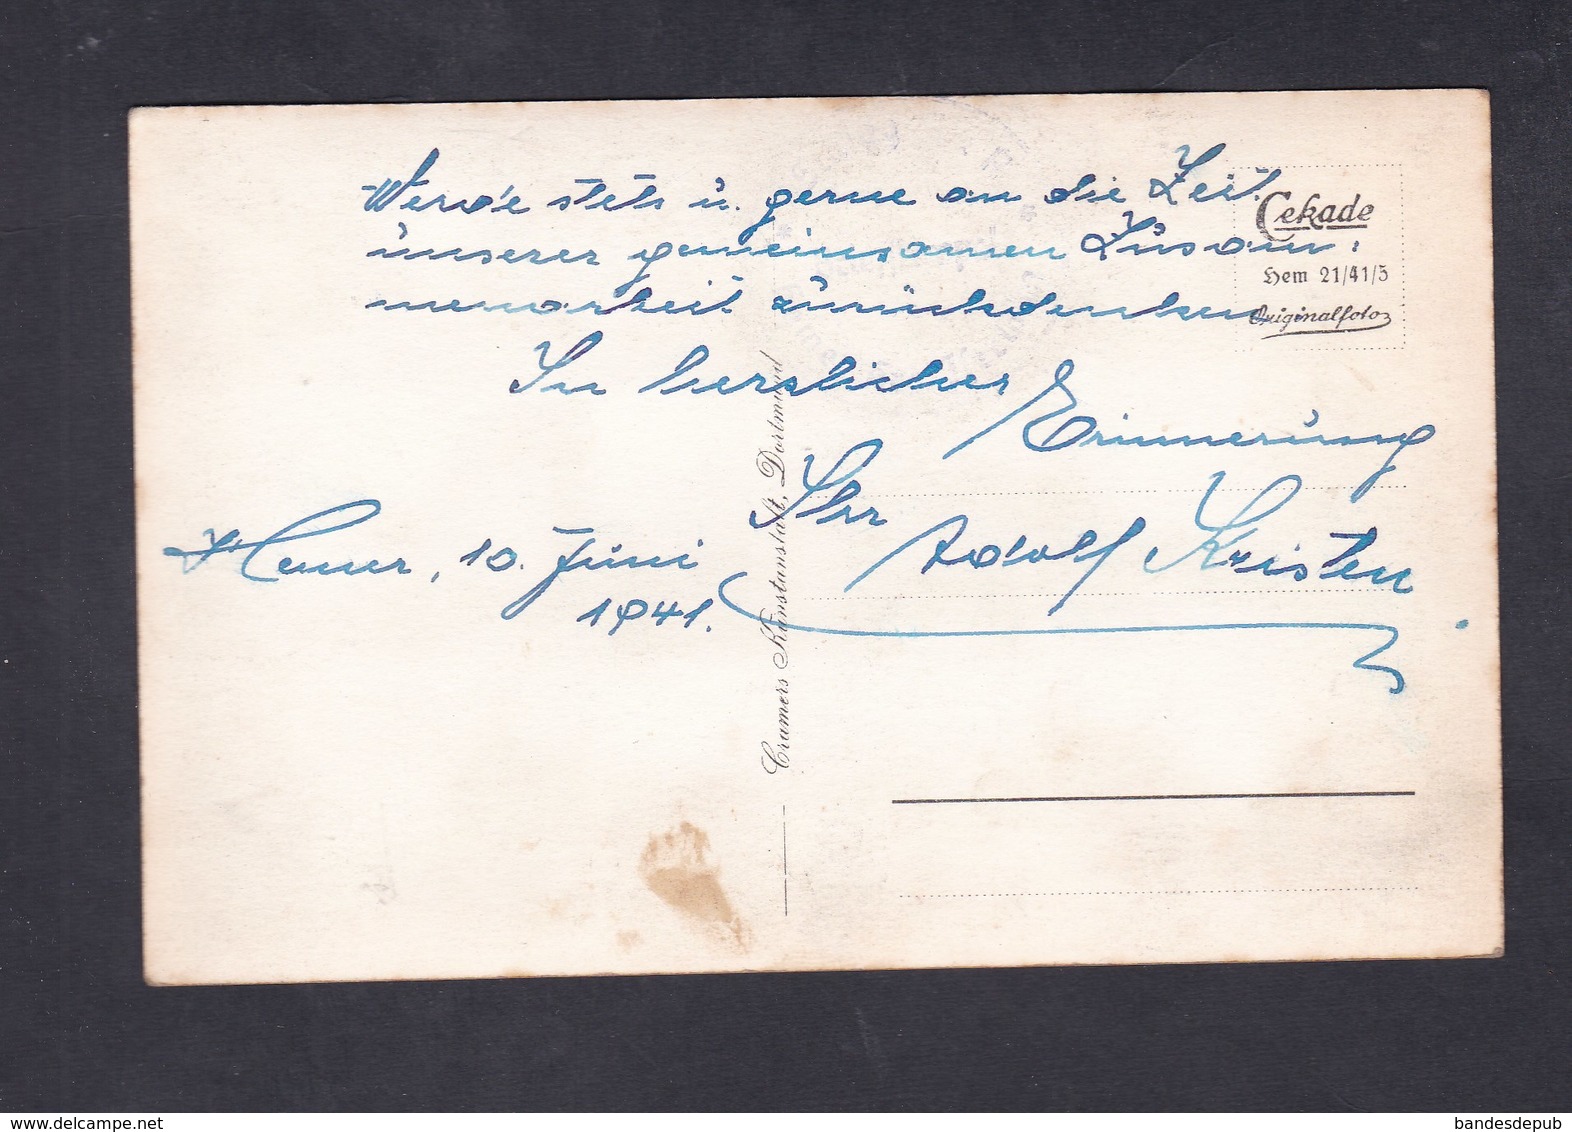 Werde stets u. gerne an die Zeit
unserer gemeinsamen Zusam:
menarbeit zurückdenken.
In herzlicher
Erinnerung
Ihr
Adolf
Hemer, 10. Juni
1941.
Cekade
Hem 21/41/5
Originalfoto
Cramers Kunstanstalt, Dortmund
bandesdepub